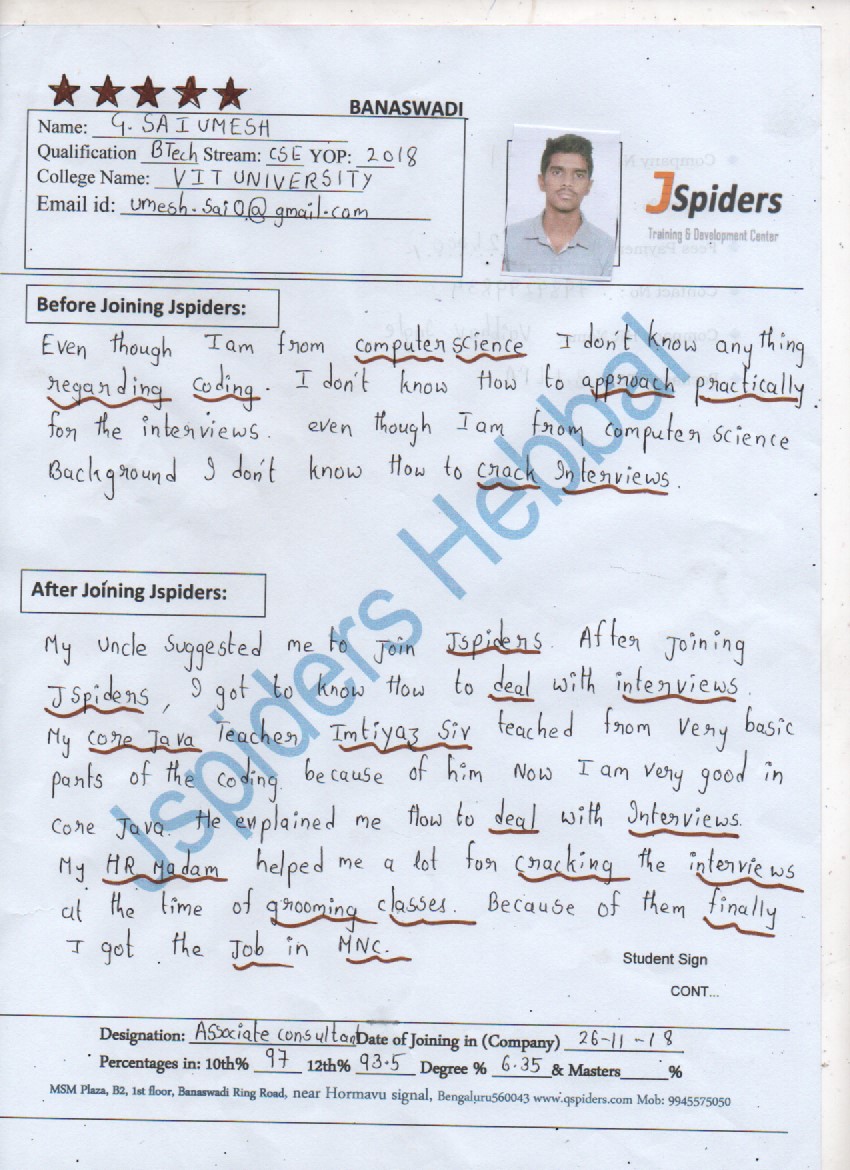 BANASWADI
Name: G. SAI UMESH
Qualification BTech Stream: CSE YOP: 2018
College Name: VIT UNIVERSITY
Email id: umesh.sai0@gmail.com
JSpiders
Training & Development Center
Before Joining Jspiders:
Even though I am from computer science I don't know any thing
regarding coding. I don't know How to approach practically.
for the interviews. even though I am from computer science
Background I don't know How to crack Interviews.
After Joining Jspiders:
My uncle suggested me to join Jspiders. After joining
JSpiders, I got to know How to deal with interviews.
My core Java Teacher Imtiyaz Sir teached from very basic
parts of the coding. because of him Now I am very good in
core Java. He explained me How to deal with Interviews.
My HR Madam helped me a lot for cracking the interviews
at the time of grooming classes. Because of them finally
I got the Job in MNC.
Student Sign
CONT...
Designation: Associate consultant Date of Joining in (Company) 26-11-18
Percentages in: 10th% 97 12th% 93.5 Degree % 6.35 & Masters %
MSM Plaza, B2, 1st floor, Banaswadi Ring Road, near Hormavu signal, Bengaluru560043 www.qspiders.com Mob: 9945575050
Jspiders Hebbal